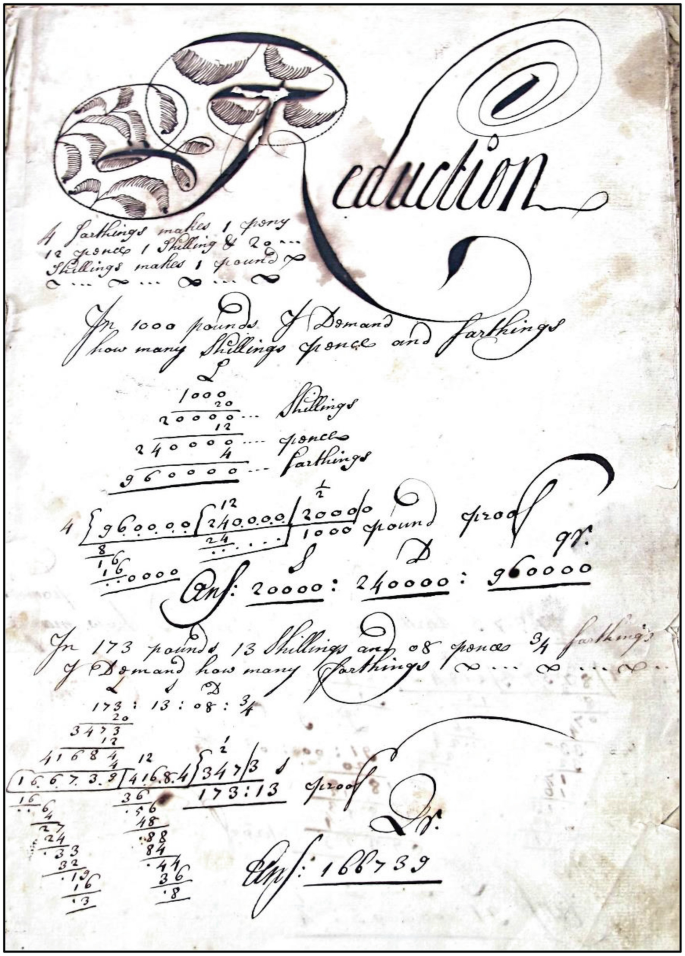 Reduction
4 farthings makes 1 peny
12 pence 1 Shilling & 20 ...
Shillings makes 1 pound
In 1000 pounds I Demand
how many Shillings pence and farthings
L
1000
20
20000 ... Shillings
12
240000 .... pence
4
960000 ... farthings
12 1/2
4 960000 240000 20000
1000 pound proof
8 24
16
16
0000
S D qr.
Ans: 20000 : 240000 : 960000
In 173 pounds 13 Shillings and 08 pences 3/4 farthings
I Demand how many farthings
L S D
173 : 13 : 08 : 3/4
20
3473
12
41684
4 12 1/2
166739 41684 347/3 S
173:13 proof
16 36
6 56
4 48
27 88
24 84
33 44
32 36
19 8
16
3
Qr.
Ans: 166739